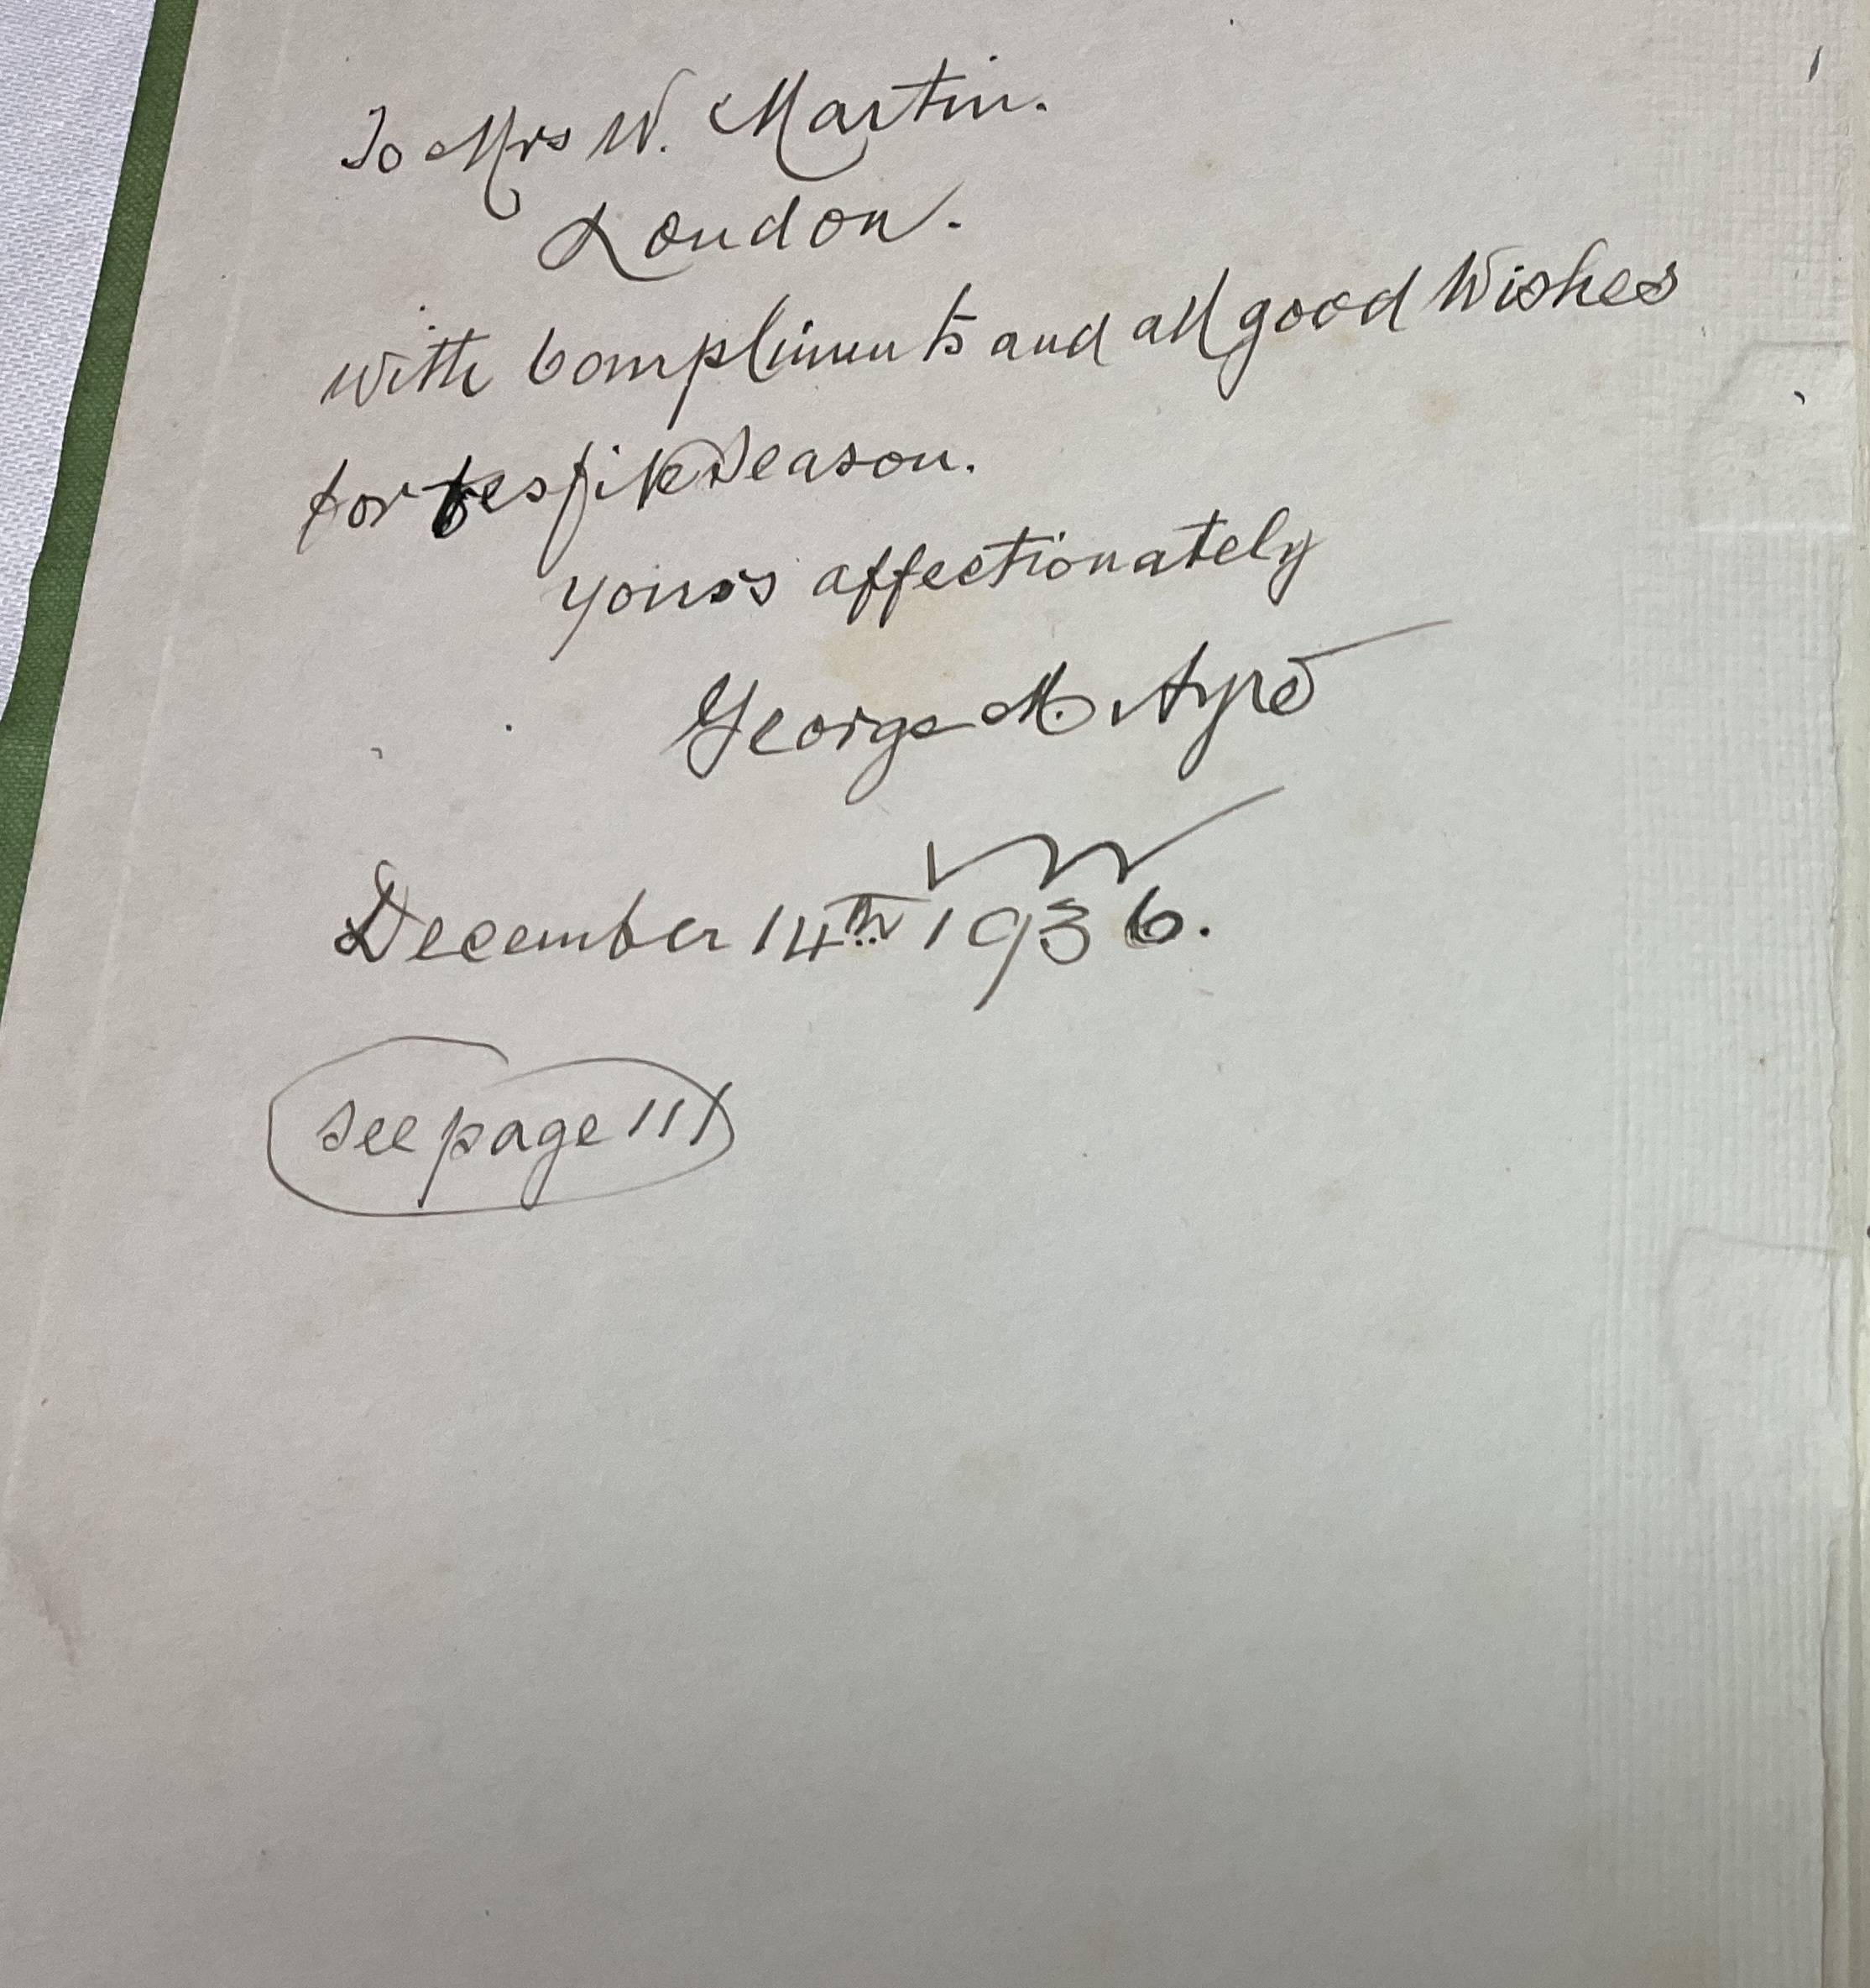 To Mrs W. Martin.
London.
with Compliments and all good Wishes
for Season.
yours affectionately
George M. Ayre
December 14th 1936.
see page 111